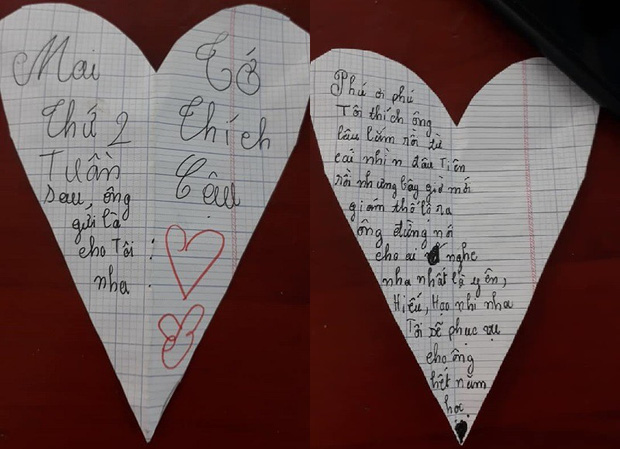 Mai
Thứ 2
Tuần
sau, ông
gửi là
cho Tôi :
nha .
Tớ
thích
Cậu
Phú ơi phú
Tôi thích ông
lâu lắm rồi từ
cái nhìn đâu Tiên
rồi nhưng bây giờ mới
gián thổ lộ ra
ông đừng nó
cho ai nghe
nha nhất là yên,
Hiếu, Hạo nhi nha
Tôi sẽ phục vụ
cho ông
hết năm
học.